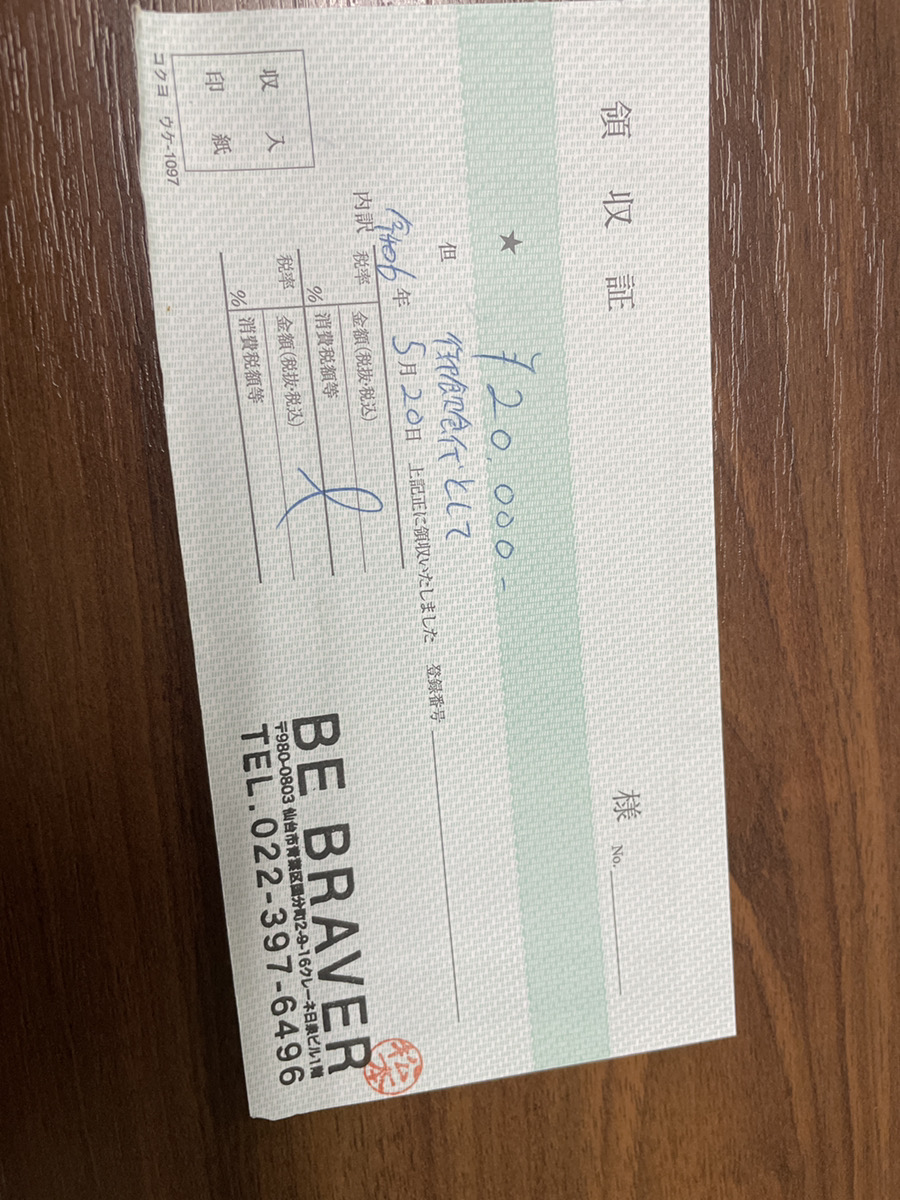 領収証
様 No.
★ ¥20,000-
但 御飲食代として
令和6年 5月20日 上記正に領収いたしました 登録番号
内訳
税率 金額(税抜・税込)
% 消費税額等
税率 金額(税抜・税込)
% 消費税額等
収入
印紙
コクヨ ウケ-1097
BE BRAVER
〒980-0803 仙台市青葉区国分町2-9-16クレーネ日泉ビル1階
TEL.022-397-6496